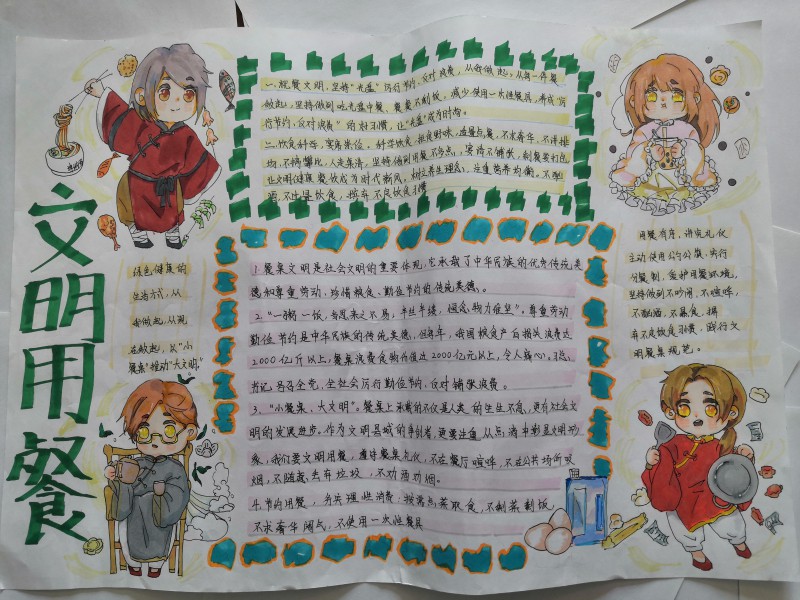 文明用餐
一、就餐文明,坚持"光盘"厉行节约,反对浪费,从我做起,从每一件餐
做起,坚持做到吃光盘中餐,餐餐不剩饭,减少使用一次性餐具,养成"厉
行节约,反对浪费"的好习惯,让"光盘"成为时尚。
二、饮食科学,营养来位,科学饮食,拒食野味,适量点餐,不求奢华,不讲排
场,不搞攀比,人走桌清,坚持做到用餐不多点,宴请不铺张,剩餐要打包
让文明健康餐饮成为时代新风,树立养生理念,注重营养均衡。不酗
酒,不过量饮食,摈弃不良饮食习惯
绿色健康的
生活方式,从
我做起,从现
在做起,以"小
餐桌"推动"大文明"
1.餐桌文明是社会文明的重要体现,它承载了中华民族的优秀传统美
德和尊重劳动,珍惜粮食、勤俭节约的传统美德。
2."一粥一饭,当思来之不易,半丝半缕,恒念物力维艰"。尊重劳动
勤俭节约是中华民族的传统美德,但每年,我国粮食产后损失浪费达
2000亿斤以上,餐桌浪费食物价值达2000亿元以上,令人痛心。习总
书记号召全党,全社会厉行勤俭节约,反对铺张浪费。
3、"小餐桌、大文明"。餐桌上承载的不仅是人类的生生不息,更有社会文
明的发展进步。作为文明县城的争创者,更要注重从点滴中彰显文明形
象,我们要文明用餐,遵守餐桌礼仪,不在餐厅喧哗,不在公共场所吸
烟,不随地丢弃垃圾,不劝酒劝烟。
4.节约用餐,务实理性消费:按需点菜取食,不剩菜剩饭
不求奢华阔气,不使用一次性餐具
用餐有序,讲究礼仪
主动使用公勺公筷,实行
分餐制,爱护用餐环境,
坚持做到不吵闹,不喧哗,
不酗酒,不暴食,摒
弃不良饮食习惯,践行文
明餐桌规范。